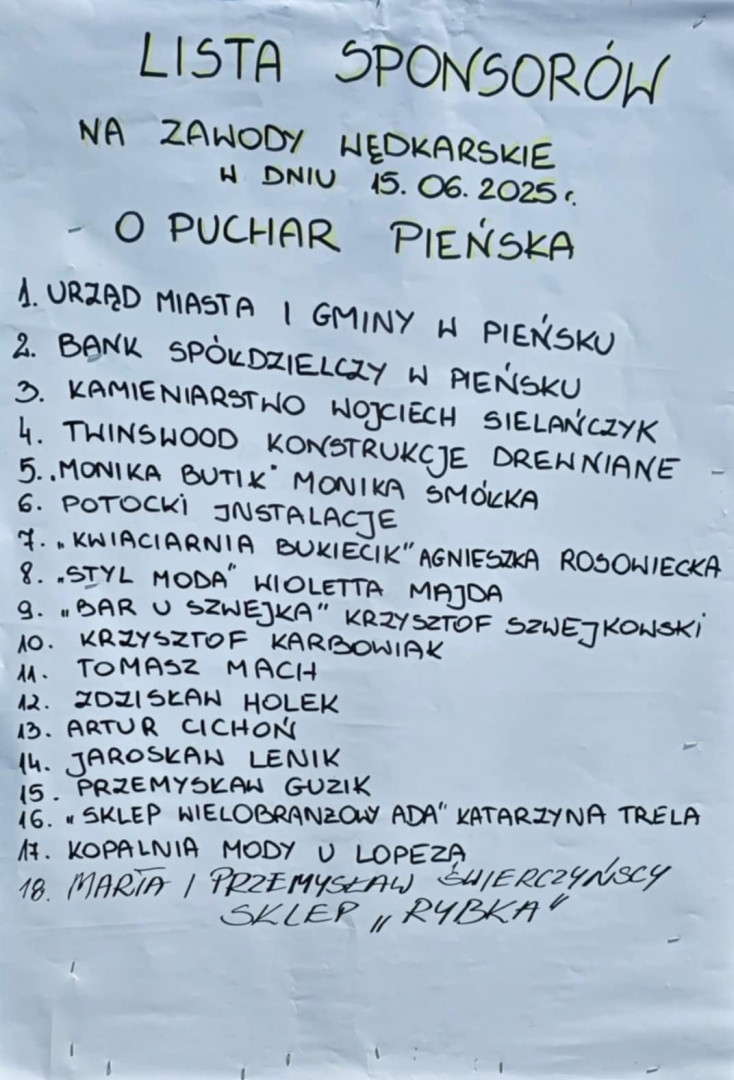 LISTA SPONSORÓW
NA ZAWODY WĘDKARSKIE
W DNIU 15.06.2025 r.
- O PUCHAR PIEŃSKA
1. URZĄD MIASTA I GMINY W PIEŃSKU
2. BANK SPÓŁDZIELCZY W PIEŃSKU
3. KAMIENIARSTWO WOJCIECH SIELAŃCZYK
4. TWINSWOOD KONSTRUKCJE DREWNIANE
5. „MONIKA BUTIK" MONIKA SMÓŁKA
6. POTOCKI INSTALACJE
7. „KWIACIARNIA BUKIECIK" AGNIESZKA ROSOWIECKA
8. „STYL MODA" WIOLETTA MAJDA
9. „BAR U SZWEJKA" KRZYSZTOF SZWEJKOWSKI
10. KRZYSZTOF KARBOWIAK
11. TOMASZ MACH
12. ZDZISŁAW HOLEK
13. ARTUR CICHOŃ
14. JAROSŁAW LENIK
15. PRZEMYSŁAW GUZIK
16. „SKLEP WIELOBRANŻOWY ADA" KATARZYNA TRELA
17. KOPALNIA MODY U LOPEZA
18. MARTA I PRZEMYSŁAW ŚWIERCZYŃSCY
SKLEP „RYBKA"